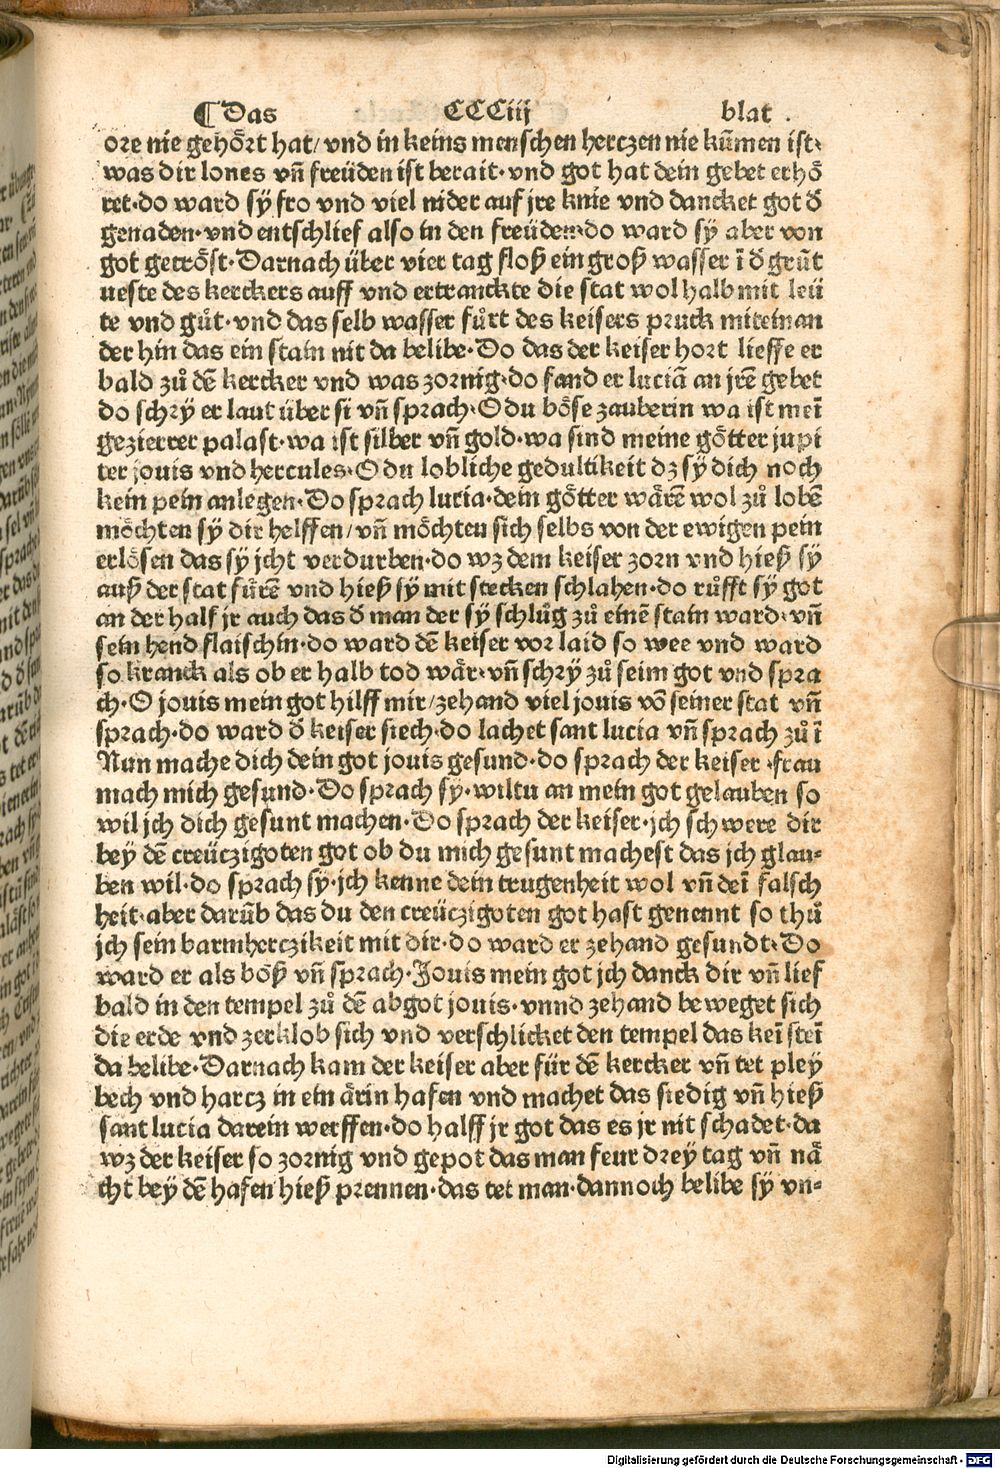 ¶ Das CCCiij blat .
ore nie gehoͤrt hat/ vnd in keins menschen herczen nie kum̃en ist·
was dir lones vn̄ freüden ist berait· vnd got hat dein gebet erhoͤ
ret· do ward sy fro vnd viel nider auf jre knie vnd dancket got d̄
genaden· vnd entschlief also in den freüden· do ward sy aber von
got getroͤst· Darnach über vier tag floß ein groß wasser ī d̄ grūt
ueste des kerckers auff vnd ertranckte die stat wol halb mit leü
te vnd guͦt· vnd das selb wasser fuͤrt des keisers pruck miteinan
der hin das ein stain nit da belibe· Do das der keiser hort lieffe er
bald zuͦ dē kercker vnd was zornig· do fand er luciā an jrē gebet
do schry er laut über si vn̄ sprach· O du boͤse zauberin wa ist meī
gezierter palast· wa ist silber vn̄ gold· wa sind meine goͤtter jupi
ter jouis vnd hercules· O du lobliche gedultikeit dz sy dich noch
kein pein anlegen· Do sprach lucia· dein goͤtter waͤrē wol zuͦ lobē
moͤchten sy dir helffen/ vn̄ moͤchten sich selbs von der ewigen pein
erloͤsen das sy jcht verdurben· do wz dem keiser zorn vnd hieß sy
auß der stat fuͤrē vnd hieß sy mit stecken schlahen· do ruͦfft sy got
an der half jr auch das d̄ man der sy schluͦg zuͦ einē stain ward· vn̄
sein hend flaischin· do ward dē keiser vor laid so wee vnd ward
so kranck als ob er halb tod waͤr· vn̄ schry zuͦ seim got vnd spra
ch· O jouis mein got hilff mir/ zehand viel jouis vō seiner stat vn̄
sprach· do ward d̄ keiser siech· do lachet sant lucia vn̄ sprach zuͦ ī
Nun mache dich dein got jouis gesund· do sprach der keiser· frau
mach mich gesund· Do sprach sy· wiltu an mein got gelauben so
wil jch dich gesunt machen· Do sprach der keiser· jch schwere dir
bey dē creüczigoten got ob du mich gesunt machest das jch glau⸗
ben wil· do sprach sy· jch kenne dein trugenheit wol vn̄ deī falsch
heit· aber darūb das du den creüczigoten got hast genennt so thuͦ
jch sein barmherczikeit mit dir· do ward er zehand gesundt· Do
ward er als boͤß vn̄ sprach· Jouis mein got jch danck dir vn̄ lief
bald in den tempel zuͦ dē abgot jouis· vnnd zehand beweget sich
die erde vnd zerklob sich vnd verschlicket den tempel das keī steī
da belibe· Darnach kam der keiser aber für dē kercker vn̄ tet pley
bech vnd harcz in ein aͤrin hafen vnd machet das siedig vn̄ hieß
sant lucia darein werffen· do halff jr got das es jr nit schadet· da
wz der keiser so zornig vnd gepot das man feur drey tag vn̄ naͤ
cht bey dē hafen hieß prennen· das tet man· dannoch belibe sy vn⸗
Digitalisierung gefördert durch die Deutsche Forschungsgemeinschaft - DFG